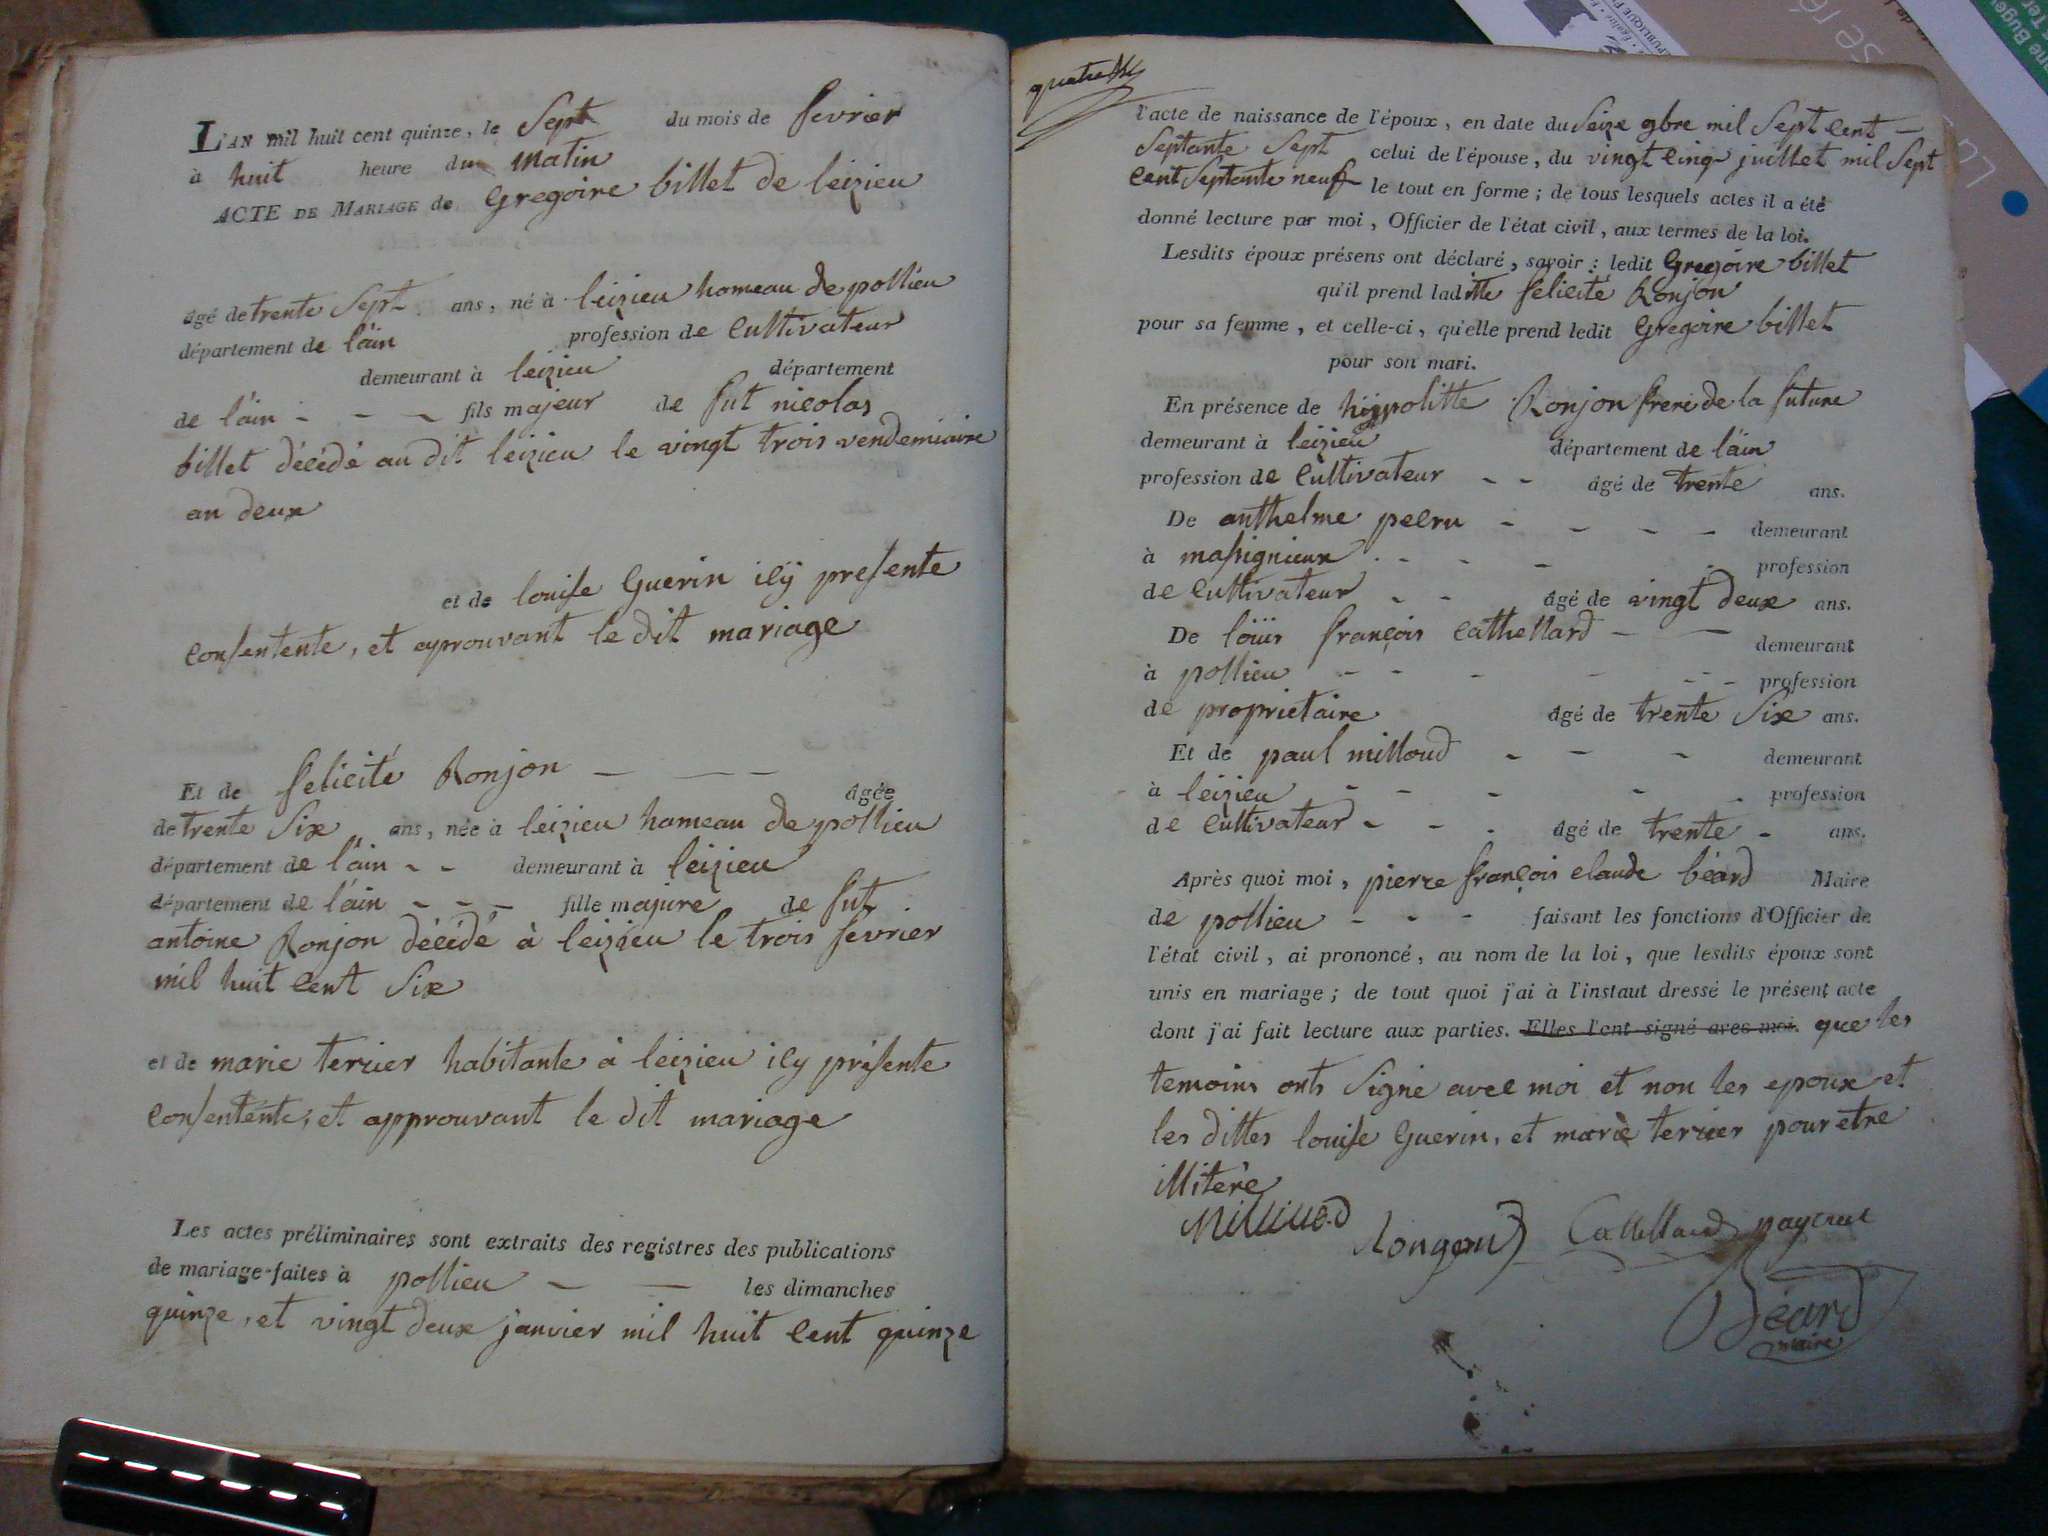 L'AN mil huit cent quinze, le Sept du mois de fevrier
à huit heure du matin
ACTE DE MARIAGE de Gregoire billet de leizieu
agé de trente Sept ans, né à leizieu homeau de pollieu
département de l'ain profession de Cultivateur
demeurant à leizieu département
de l'ain - - - fils majeur de fut nicolas
billet décédé au dit leizieu le vingt trois vendemiaire
an deux
et de louise Guerin icÿ presente
consentente, et aprouvant le dit mariage
Et de felicité Ronjon - - - agée
de trente Six ans, née à leizieu hameau de pollieu
département de l'ain - - demeurant à leizieu
département de l'ain - - - fille majure de fut
antoine Ronjon décédé à leizieu le trois fevrier
mil huit Cent Six
et de marie terrier habitante à leizieu icy présente
Consentente, et approuvant le dit mariage
Les actes préliminaires sont extraits des registres des publications
de mariage faites à pollieu - - les dimanches
quinze, et vingt deux janvier mil huit Cent quinze
l'acte de naissance de l'époux, en date du Seize gbre mil Sept Cent -
Septante Sept celui de l'épouse, du vingt Cinq juillet mil Sept
Cent Septante neuf le tout en forme ; de tous lesquels actes il a été
donné lecture par moi, Officier de l'état civil, aux termes de la loi.
Lesdits époux présens ont déclaré, savoir : ledit Gregoire billet
qu'il prend laditte felicité Ronjon
pour sa femme, et celle-ci, qu'elle prend ledit Gregoire billet
pour son mari.
En présence de hippolitte Ronjon frere de la future
demeurant à leizieu département de l'ain
profession de Cultivateur - - âgé de trente ans.
De anthelme pecru - - - - demeurant
à massignieux - - - - profession
de Cultivateur - - âgé de vingt deux ans.
De loüis françois Cathelland - - demeurant
à pollieu - - - - - - profession
de proprietaire âgé de trente Six ans.
Et de paul milloud - - - demeurant
à leizieu - - - - - profession
de Cultivateur - - - âgé de trente - ans.
Après quoi moi, pierre françois claude béard Maire
de pollieu - - - faisant les fonctions d'Officier de
l'état civil, ai prononcé, au nom de la loi, que lesdits époux sont
unis en mariage ; de tout quoi j'ai à l'instaut dressé le présent acte
dont j'ai fait lecture aux parties. Elles l'ont signé avec moi. que les
temoins onts Signé avec moi et non les epoux et
les dittes louise Guerin, et marie terrier pour etre
illitère
Milliued Rongon Catelland
Béard
maire